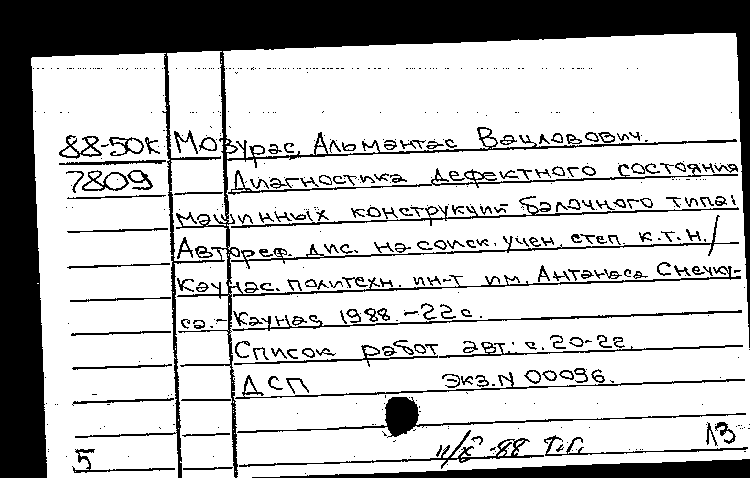 88-50к Мозурас, Альмантас Вацловович.
7809 Диагностика дефектного состояния
машинных конструкций балочного типа:
Автореф. дис. на соиск. учен. степ. к.т.н./
Каунас. политехн. ин-т им. Антанаса Снечку-
са. - Каунас, 1988. - 22 с.
Список работ авт.: с. 20-22.
ДСП Экз. N 00096.
5 -88 13